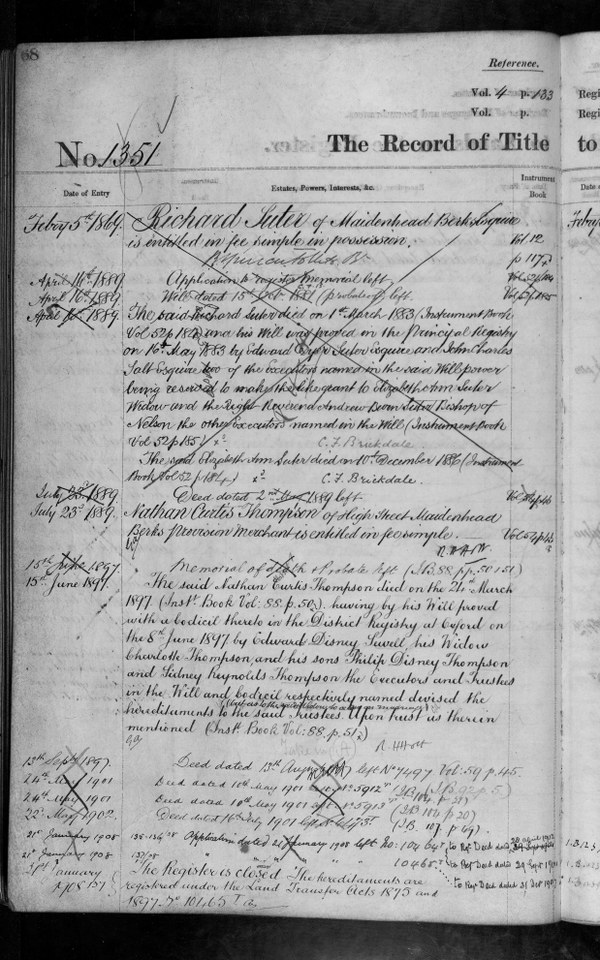 68
Reference.
Vol. 4 p. 133
Vol. p.
No. 1351
The Record of Title
Instrument
Date of Entry
Estates, Powers, Interests, &c.
Book
Feby 5th 1869.
Richard Suter of Maidenhead Berks Esquire
is entitled in fee simple in possession.
Vol. 12
p 117
April 14th 1889
Application to register memorial left
Vol 52 p 184
April 16th 1889
Will dated 15th 1881 (probate of) left.
Vol 52 p 185
April 1889
The said Richard Suter died on 1st March 1883 (Instrument Book
Vol 52 p 184) and his Will was proved in the Principal Registry
on 16th May 1883 by Edward Dyer Suter Esquire and John Charles
Salt Esquire two of the Executors named in the said Will power
being reserved to make the like grant to Elizabeth Ann Suter
Widow and the Right Reverend Andrew Burn Suter Bishop of
Nelson the other executors named in the Will (Instrument Book
Vol 52 p 185)
C. F. Brickdale.
The said Elizabeth Ann Suter died on 10th December 1886 (Instrument
Book Vol 52 p 184)
C. F. Brickdale.
July 23rd 1889
Deed dated 2nd 1889 left
July 23rd 1889.
Nathan Curtis Thompson of High Street Maidenhead
Berks Provision Merchant is entitled in fee simple.
15th June 1897.
Memorial of death & Probate left (I.B. 88. pp. 50 & 51)
15th June 1897.
The said Nathan Curtis Thompson died on the 24th March
1897. (Inst. Book Vol: 88. p. 50) having by his Will proved
with a codicil thereto in the District Registry at Oxford on
the 8th June 1897 by Edward Disney Sewell, his Widow
Charlotte Thompson and his sons Philip Disney Thompson
and Sidney Reynolds Thompson the Executors and Trustees
in the Will and Codicil respectively named devised the
hereditaments to the said Trustees. Upon trust as therein
mentioned (Inst. Book Vol: 88. p. 51)
13th Sept 1897.
Deed dated 13th August left No 7497 Vol: 59 p. 45.
24th May 1901
Deed dated 10th May 1901 No 5912
24th May 1901
Deed dated 10th May 1901 No 5913
22nd May 1902.
Deed dated 16th July 1901
(I.B. 107. p 69)
21st January 1908
Application dated 21 January 1908 left No: 10464
to Reg. Deed dated
21st January 1908
10465
to Reg. Deed dated 29 Sept
January
1908
The Register is closed The hereditaments are
to Reg. Deed dated 31 Dec 1907
registered under the Land Transfer Acts 1875 and
1897.